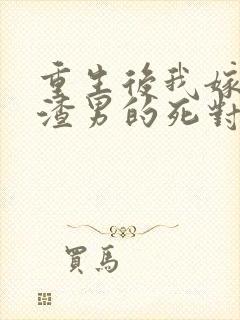 重生後我嫁
渣男的死對
買馬